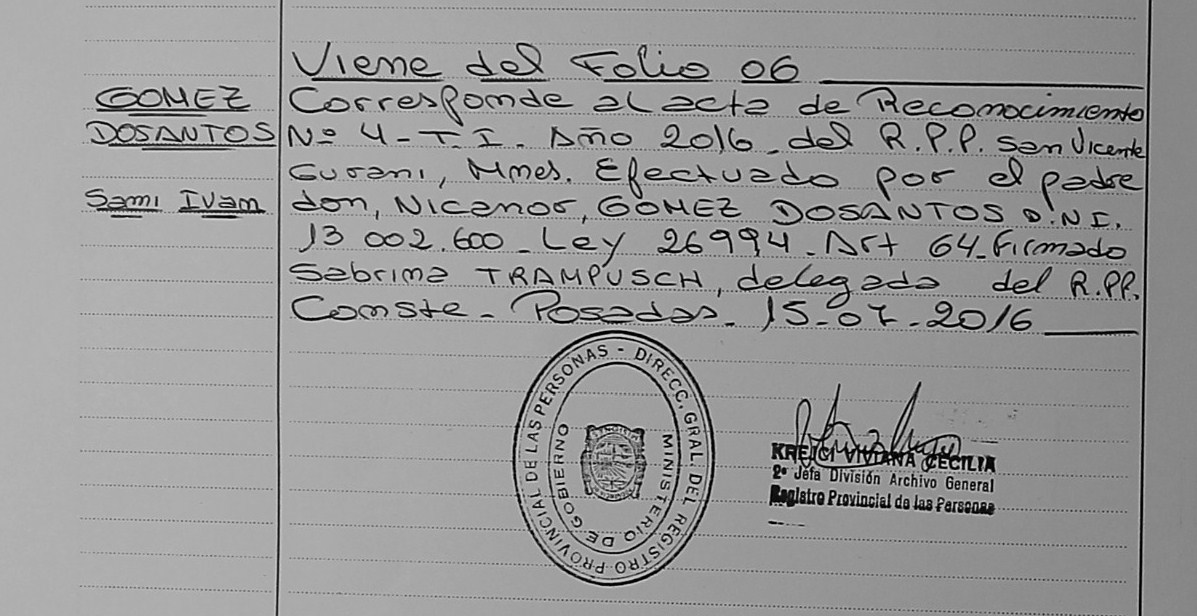 Viene del Folio 06
GOMEZ
DOSANTOS
Sami Ivan
Corresponde al acta de Reconocimiento
Nº 4 - T.I. Año 2016 - del R.P.P. San Vicente
Gurani, Mnes. Efectuado por el padre
don, Nicanor, GOMEZ DOSANTOS D.N.I.
13 002.600 - Ley 26994 - Art 64 - Firmado
Sabrina TRAMPUSCH, delegada del R.PP.
Conste - Posadas - 15-07-2016
DIRECC. GRAL. DEL REGISTRO PROVINCIAL DE LAS PERSONAS -
MINISTERIO DE GOBIERNO
KREJCI VIVIANA CECILIA
2º Jefa División Archivo General
Registro Provincial de las Personas